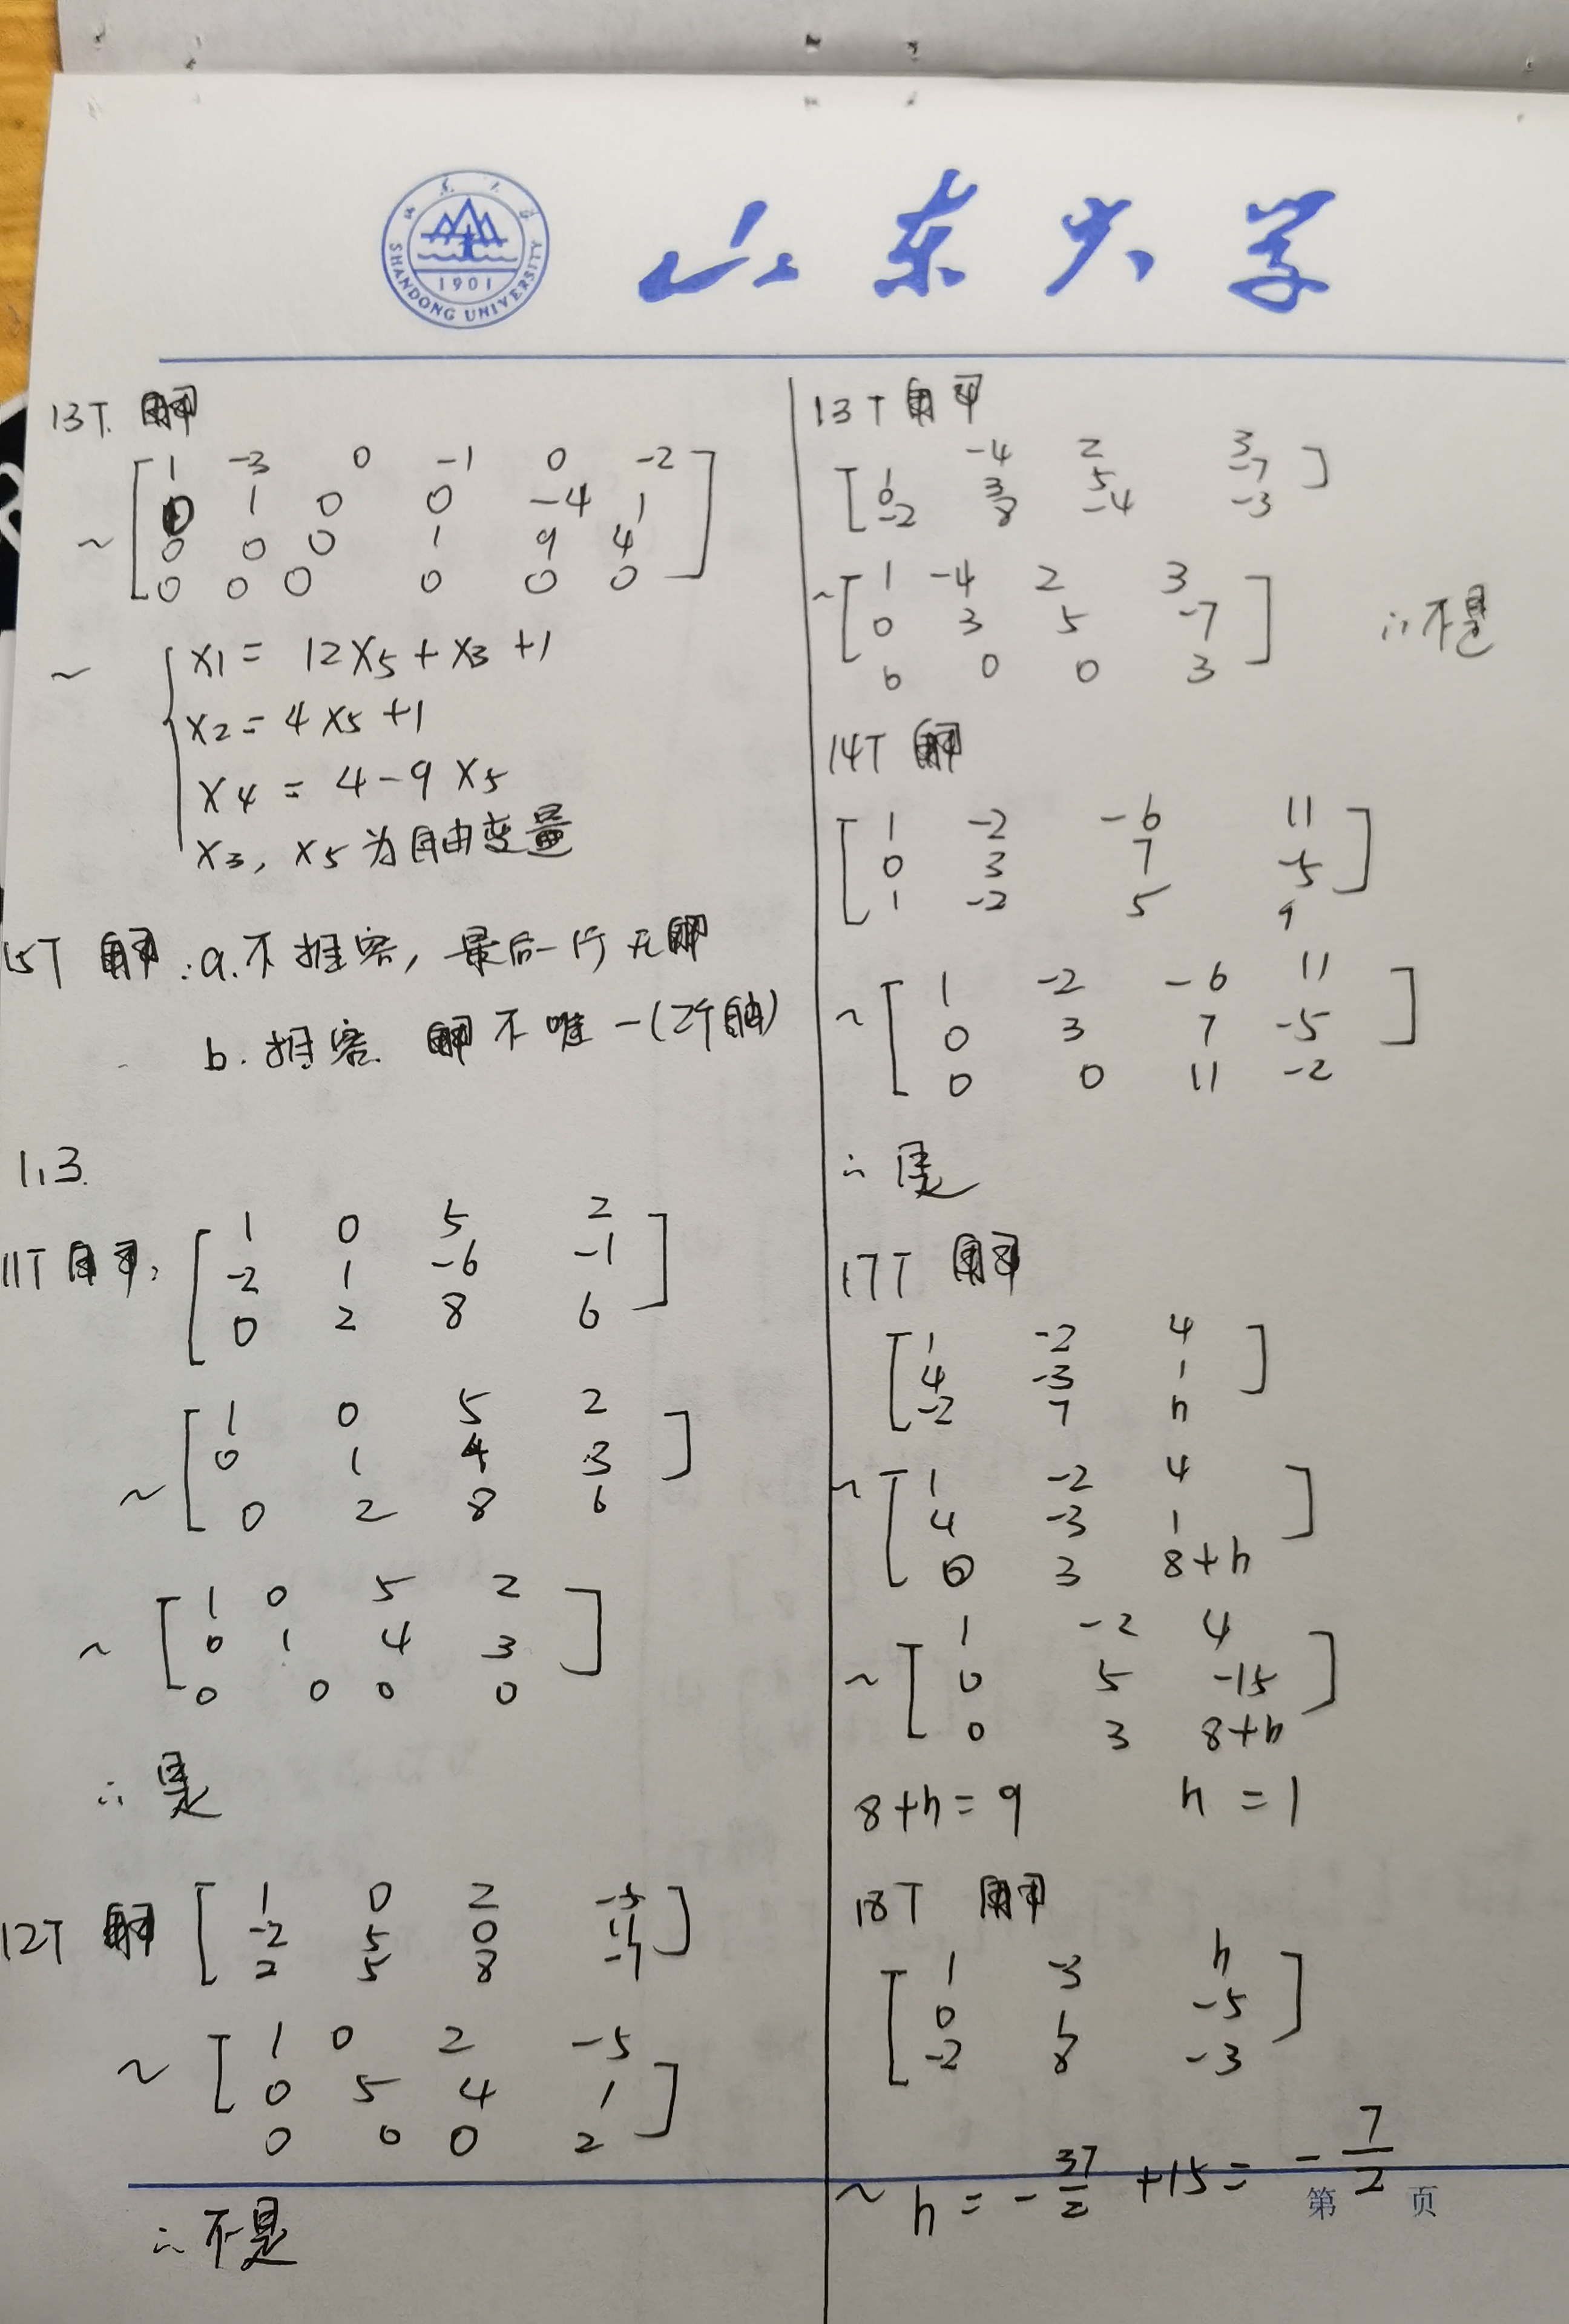 山东大学
SHANDONG UNIVERSITY
1901
13T. 解
1 -3 0 -1 0 -2
0 1 0 0 -4 1
~ 0 0 0 1 9 4
0 0 0 0 0 0
~ x1 = 12x5 + x3 + 1
x2 = 4x5 + 1
x4 = 4 - 9x5
x3, x5 为自由变量
15T 解: a. 不相容, 最后一行无解
b. 相容. 解不唯一(2个自由)
1.3.
11T 解: 1 0 5 2
-2 1 -6 -1
0 2 8 6
1 0 5 2
0 1 4 3
~ 0 2 8 6
1 0 5 2
~ 0 1 4 3
0 0 0 0
∴ 是
12T 解 1 0 2 -5
-2 5 0 11
2 5 8 -7
~ 1 0 2 -5
0 5 4 1
0 0 0 2
∴ 不是
13T 解
1 -4 2 3
0 3 5 -7
-2 8 -4 -3
~ 1 -4 2 3
0 3 5 -7 ∴ 不是
0 0 0 3
14T 解
1 -2 -6 11
0 3 7 -5
1 -2 5 9
~ 1 -2 -6 11
0 3 7 -5
0 0 11 -2
∴ 是
17T 解
1 -2 4
4 -3 1
-2 7 h
~ 1 -2 4
4 -3 1
0 3 8+h
1 -2 4
~ 0 5 -15
0 3 8+h
8+h = 9 h = 1
18T 解
1 -3 h
0 1 -5
-2 8 -3
~ h = -37/2 + 15 = -7/2
第 页